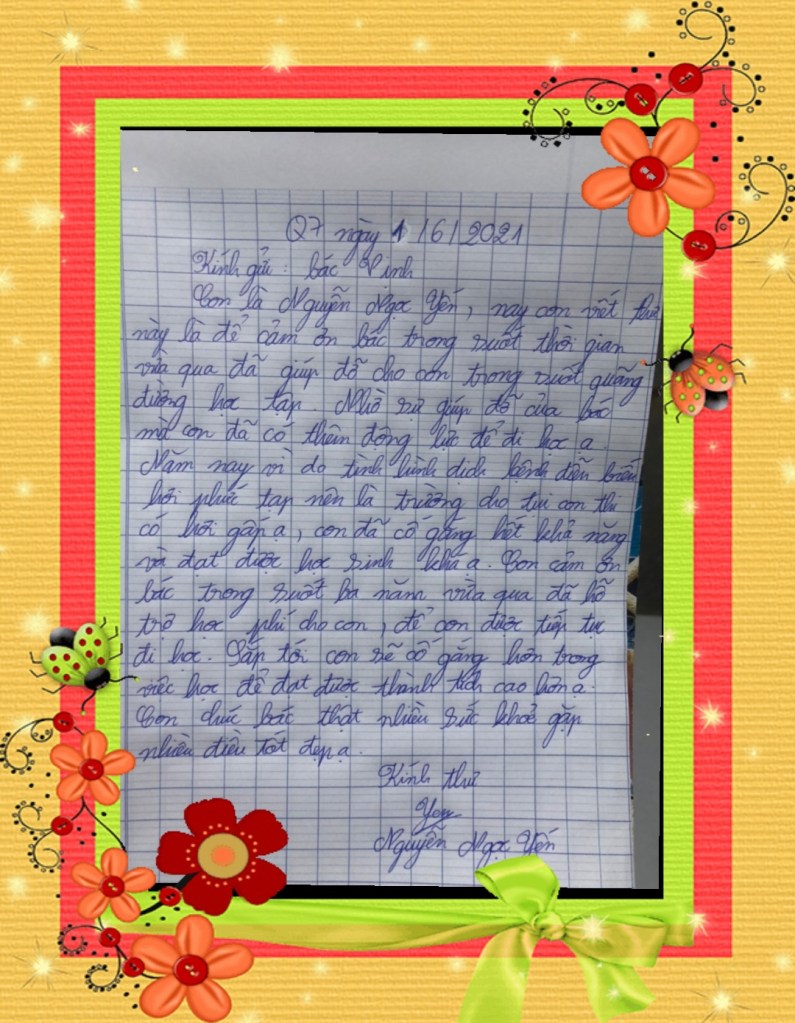 Q7 ngày 1/6/2021
Kính gửi: bác Vinh
Con là Nguyễn Ngọc Yến, nay con viết thư
này là để cảm ơn bác trong suốt thời gian
vừa qua đã giúp đỡ cho con trong suốt quãng
đường học tập. Nhờ sự giúp đỡ của bác
mà con đã có thêm động lực để đi học ạ
Năm nay vì do tình hình dịch bệnh diễn biến
hơi phức tạp nên là trường cho tụi con thi
có hơi gấp ạ, con đã cố gắng hết khả năng
và đạt được học sinh khá ạ. Con cảm ơn
bác trong suốt ba năm vừa qua đã hỗ
trợ học phí cho con, để con được tiếp tục
đi học. Sắp tới con sẽ cố gắng hơn trong
việc học để đạt được thành tích cao hơn ạ.
Con chúc bác thật nhiều sức khoẻ gặp
nhiều điều tốt đẹp ạ.
Kính thư
Yen
Nguyễn Ngọc Yến